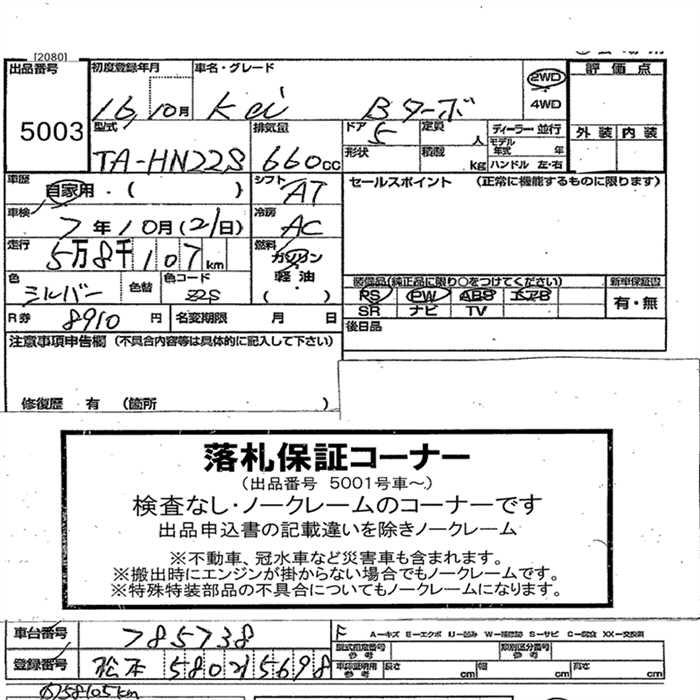 [2080]
出品番号 5003
初度登録年月 16 10月
車名・グレード Kei Bターボ
2WD
4WD
評価点
外装 内装
型式 TA-HN22S
排気量 660cc
ドア 5
形状
定員 人
積載 kg
ディーラー・並行
モデル年式 年
ハンドル 左・右
車歴 自家用・( )
シフト AT
セールスポイント (正常に機能するものに限ります)
車検 7年10月(21日)
冷房 AC
走行 5万8千107km
燃料 ガソリン
軽・油
( )
色 シルバー
色替
色コード Z2S
装備品(純正品に限り○をつけてください)
新車保証書
PS PW ABS エアB
SR ナビ TV
有・無
R券 8910円
名変期限 月 日
後日品
注意事項申告欄 (不具合内容等は具体的に記入して下さい)
修復歴 有 (箇所 )
落札保証コーナー
(出品番号 5001号車~)
検査なし・ノークレームのコーナーです
出品申込書の記載違いを除きノークレーム
※不動車、冠水車など災害車も含まれます。
※搬出時にエンジンが掛からない場合でもノークレームです。
※特殊特装部品の不具合についてもノークレームになります。
車台番号 785738
F A-キズ E-エクボ U-凹み W-補修跡 S-サビ C-腐食 XX-交換済
登録番号 松本 580 2 5698
型式指定番号 参考
類別区分番号 参考
車庫証明用 参考 長さ cm 幅 cm 高さ cm
58105km